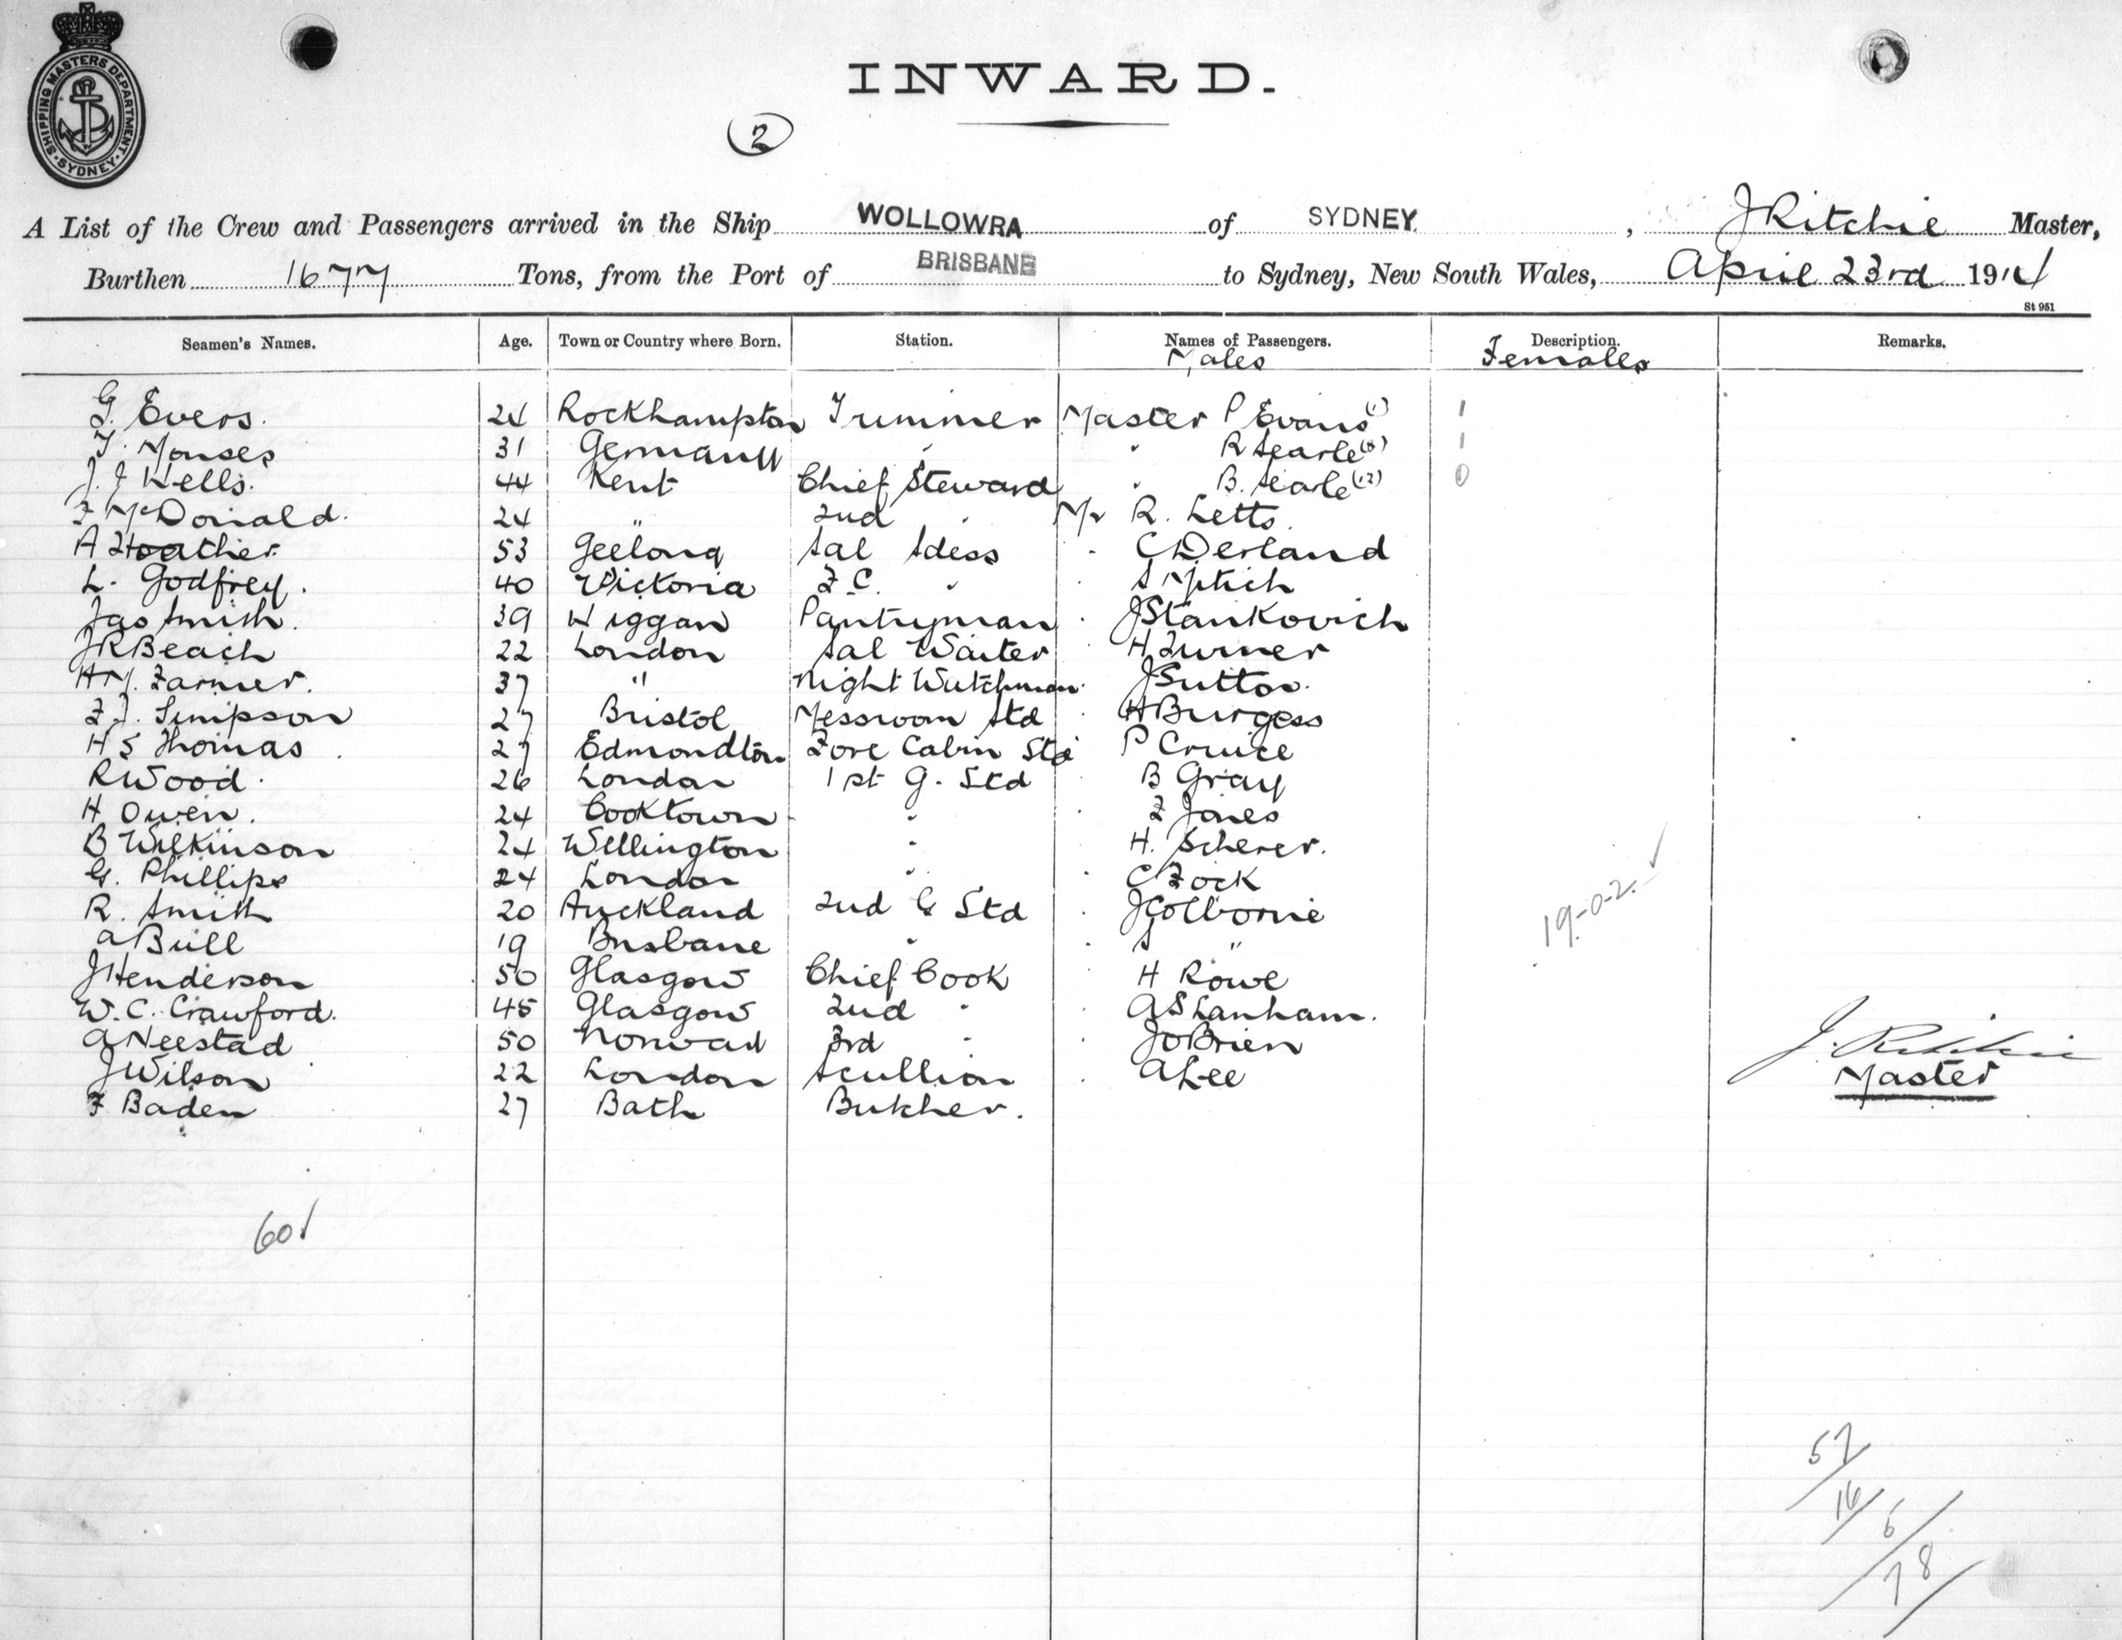 SHIPPING MASTERS DEPARTMENT
SYDNEY
INWARD.
2
A List of the Crew and Passengers arrived in the Ship WOLLOWRA of SYDNEY, J Ritchie Master,
Burthen 1677 Tons, from the Port of BRISBANE to Sydney, New South Wales, April 23rd 1914
St 951
Seamen's Names. Age. Town or Country where Born. Station. Names of Passengers. Description. Remarks.
Males Females
G. Evers. 24 Rockhampton Trimmer Master P Evans (1) 1
31 Germany " " R Searle 1
J. J Wells. 44 Kent Chief Steward " B. Searle (12) 0
F McDonald. 24 " 2nd " Mr R. Letts.
A 53 Geelong Sal Sdess " C Derland
L. Godfrey. 40 Victoria F.C. " "
Jas Smith. 39 Wiggan Pantryman " J Stankovich
J R Beach 22 London Sal Waiter " H Turner
H M. Farmer. 37 " Night Watchman " J Sutton.
F J. Simpson 27 Bristol Messroom Std " H Burgess
H S Thomas 27 Edmondton Fore Cabin Std " P Cruice
R Wood. 26 London 1st G. Std B Gray
H Owen. 24 Cooktown " " F Jones
B Wilkinson 24 Wellington " H. Scherer.
G. Phillips 24 London " " C Fock
R. Smith 20 Auckland 2nd G Std " J Colborne
A Bull 19 Brisbane " " S "
J Henderson 50 Glasgow Chief Cook " H Rowe
W. C. Crawford. 45 Glasgow 2nd " " A S Lanham.
A Neestad 50 Norway 3rd " " J O Brien
J Wilson 22 London Scullion " A Lee
F Baden 27 Bath Butcher.
19-0-2. ✓
J. Ritchie
Master
60 ✓
57
16
6
78